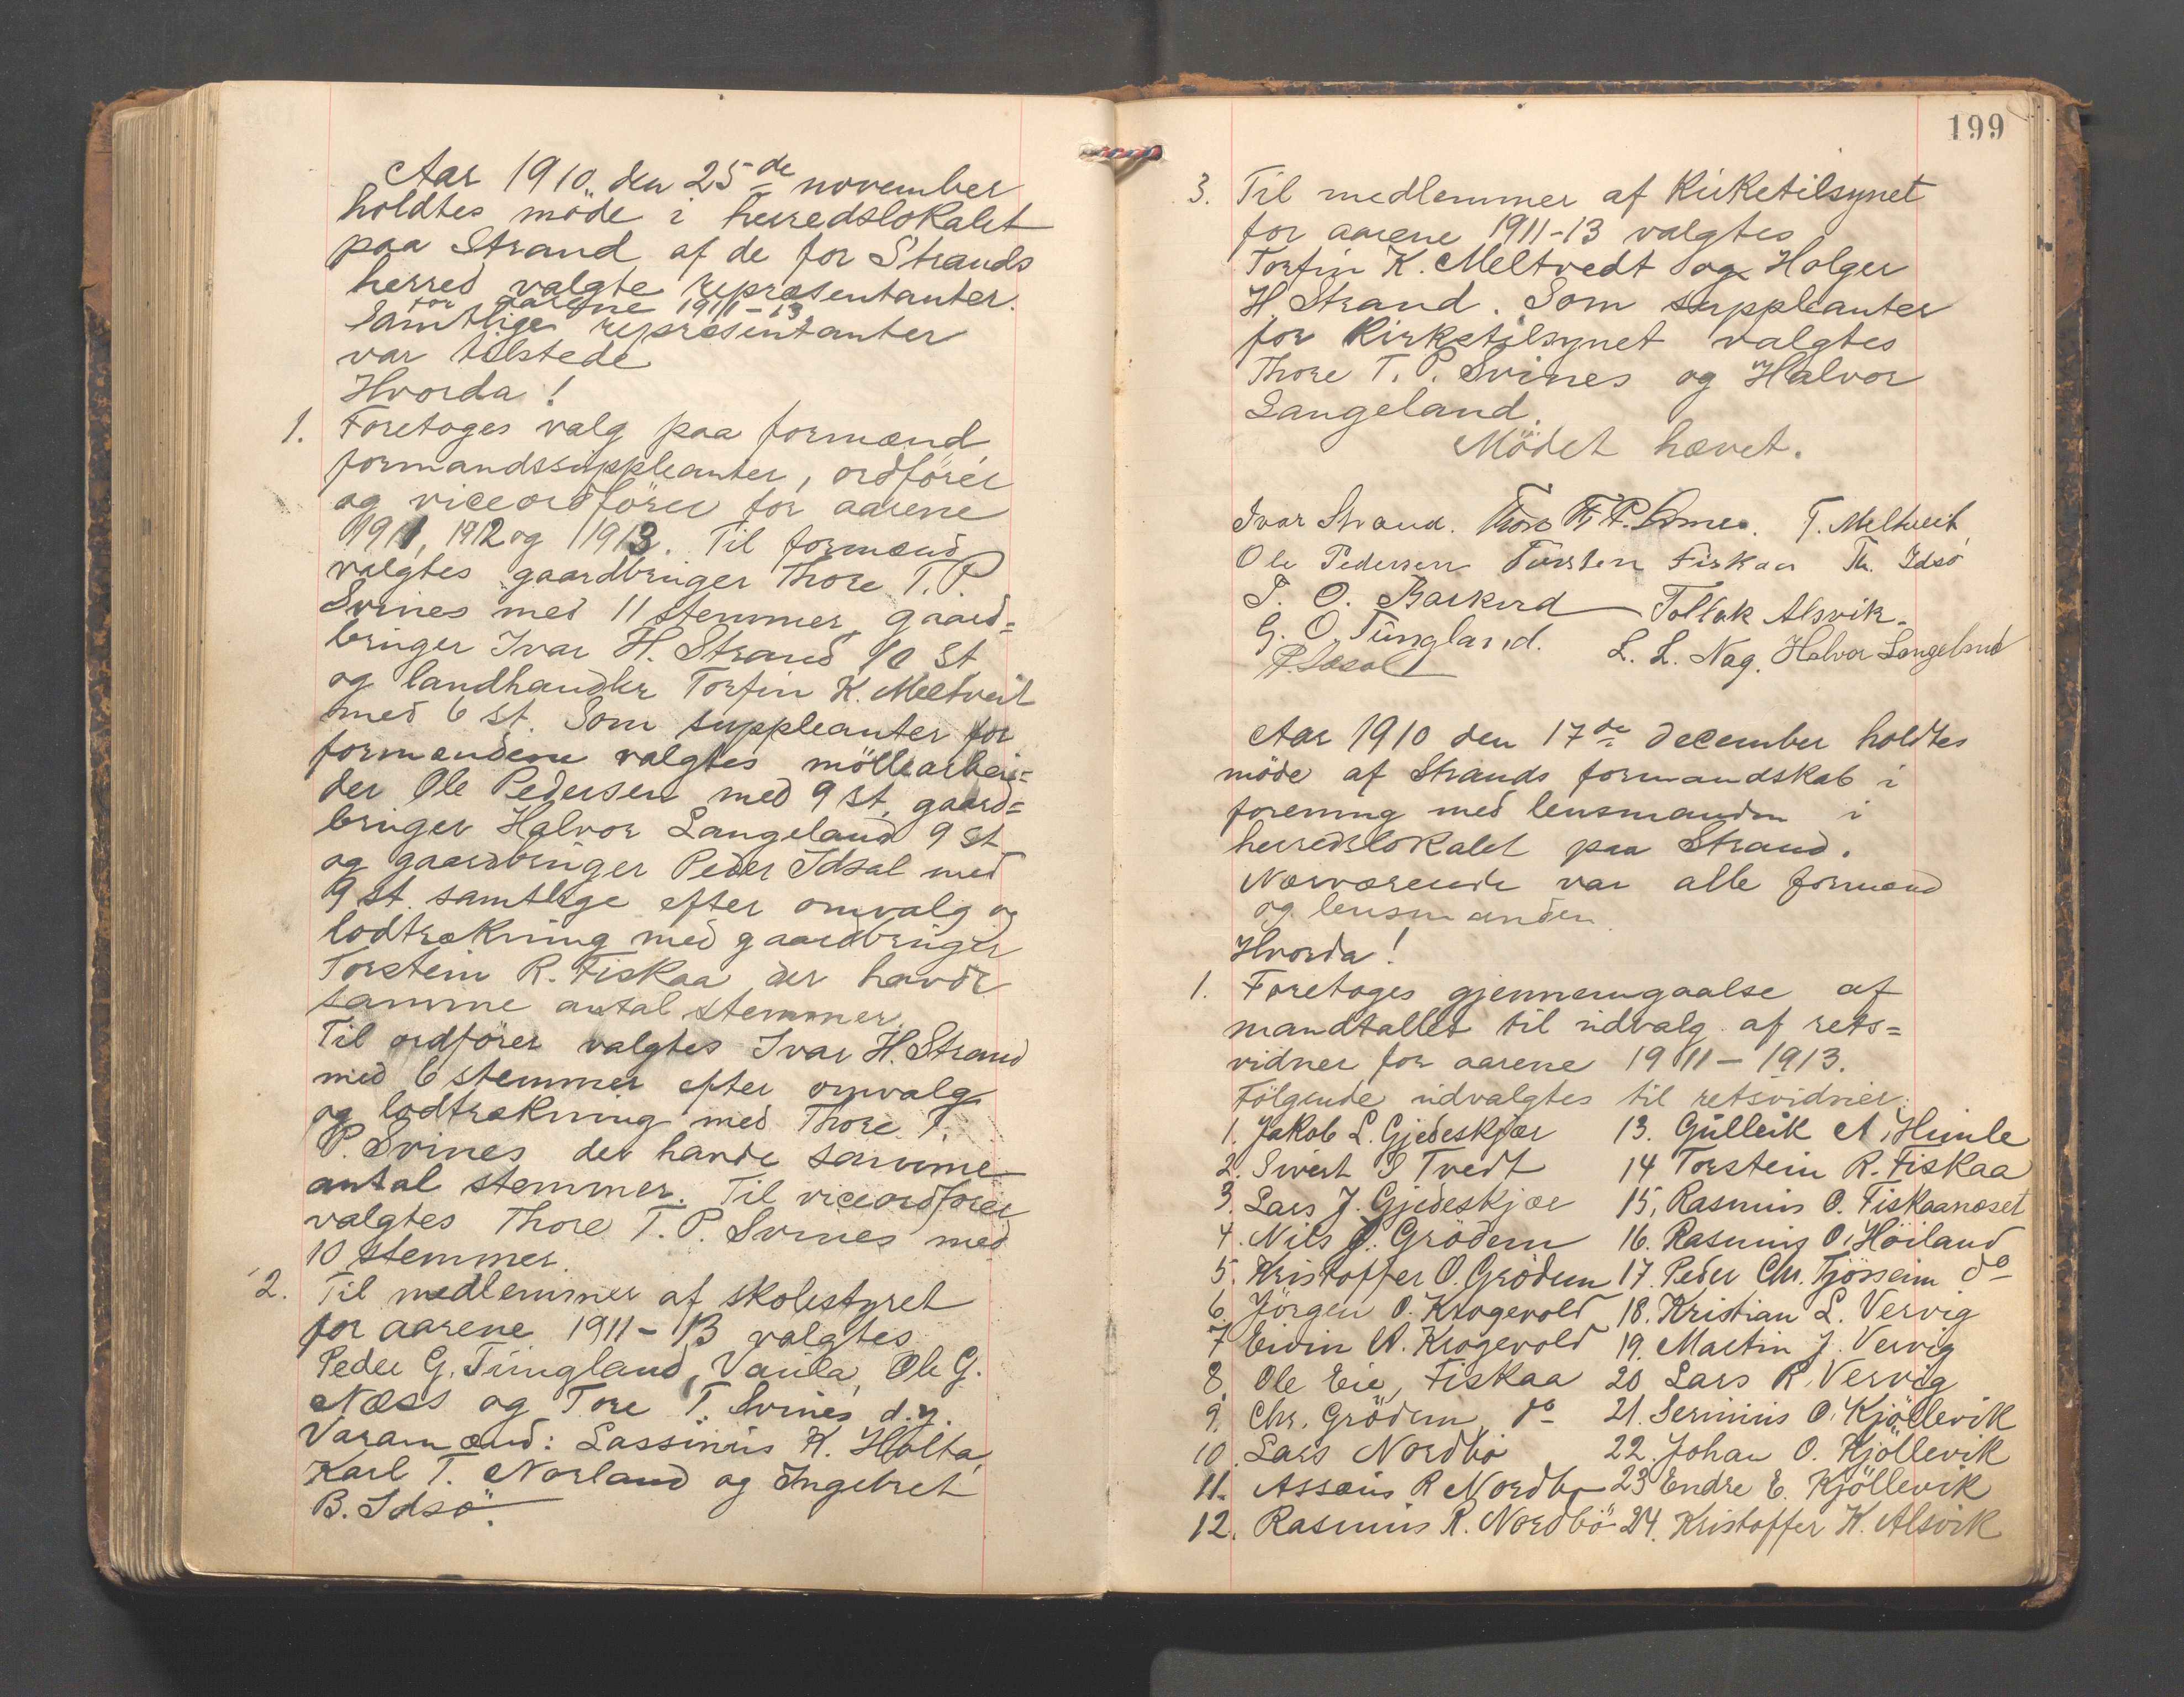 Aar 1910 den 25de november
holdtes möde i herredslokalet
paa Strand af de for Strands
herred valgte repræsentanter.
for aarene 1911-13
Samtlige repræsentanter
var tilstede
Hvorda!
1. Foretoges valg paa formænd,
formandssuppleanter, ordförer
og viceordförer for aarene
1911, 1912 og 1913. Til formænd
valgtes gaardbruger Thore T. P.
Svines med 11 stemmer, gaard=
bruger Ivar H. Strand 10 st
og landhandler Torfin K. Meltveit
med 6 st. Som suppleanter for
formændene valgtes möllearbei=
der Ole Pedersen med 9 st, gaard=
bruger Halvor Langeland 9 st
og gaardbruger Peder Idsal med
9 st. samtlige efter omvalg og
lodtrækning med gaardbruger
Torstein R. Fiskaa der havde
samme antal stemmer.
Til ordförer valgtes Ivar H. Strand
med 6 stemmer efter omvalg
og lodtrækning med Thore T.
P. Svines der havde samme
antal stemmer. Til viceordförer
valgtes Thore T. P. Svines med
10 stemmer.
2. Til medlemmer af skolestyret
for aarene 1911-13 valgtes
Peder G. Tungland, Vaula, Ole G.
Næss og Tore T. Svines d.y.
Varamænd: Lassinius K. Holta,
Karl T. Norland og Ingebret
B. Idsö.
199
3. Til medlemmer af Kirketilsynet
for aarene 1911-13 valgtes
Torfin K. Meltvedt og Holger
H. Strand. Som suppleanter
for Kirketilsynet valgtes
Thore T. P. Svines og Halvor
Langeland.
Mödet hævet.
Ivar Strand. Thore T. P. Svines. T. Meltveit
Ole Pedersen Torsten Fiskaa Th. Idsö
P. O. Barkved Tollak Alsvik.
G. O. Tungland. L. L. Nag. Halvor Langeland
P. Idsal
Aar 1910 den 17de december holdtes
möde af Strands formandskab i
forening med lensmanden i
herredslokalet paa Strand.
Nærværende var alle formænd
og lensmanden.
Hvorda!
1. Foretoges gjennemgaaelse af
mandtallet til udvalg af rets=
vidner for aarene 1911-1913.
Fölgende udvalgtes til retsvidner:
1. Jakob L. Gjedeskjær 13. Gulleik A. Himle
2. Sivert S Tvedt 14 Torstein R. Fiskaa
3. Lars J. Gjedeskjær 15. Rasmus O. Fiskaanæset
4. Nils J. Grödem 16. Rasmus O. Höiland
5. Kristoffer O. Grödem 17. Peder Chr. Tjösseim do
6. Jörgen O. Krogevold 18. Kristian L. Vervig
7 Eivin A. Krogevold 19. Martin J. Vervig
8. Ole Eie, Fiskaa 20 Lars R. Vervig
9. Chr. Grödem do 21. Serinius O. Kjöllevik
10. Lars Nordbö 22. Johan O. Kjöllevik
11. Assæus R Nordbö 23 Endre E. Kjöllevik
12. Rasmus R. Nordbö 24. Kristoffer K. Alsvik